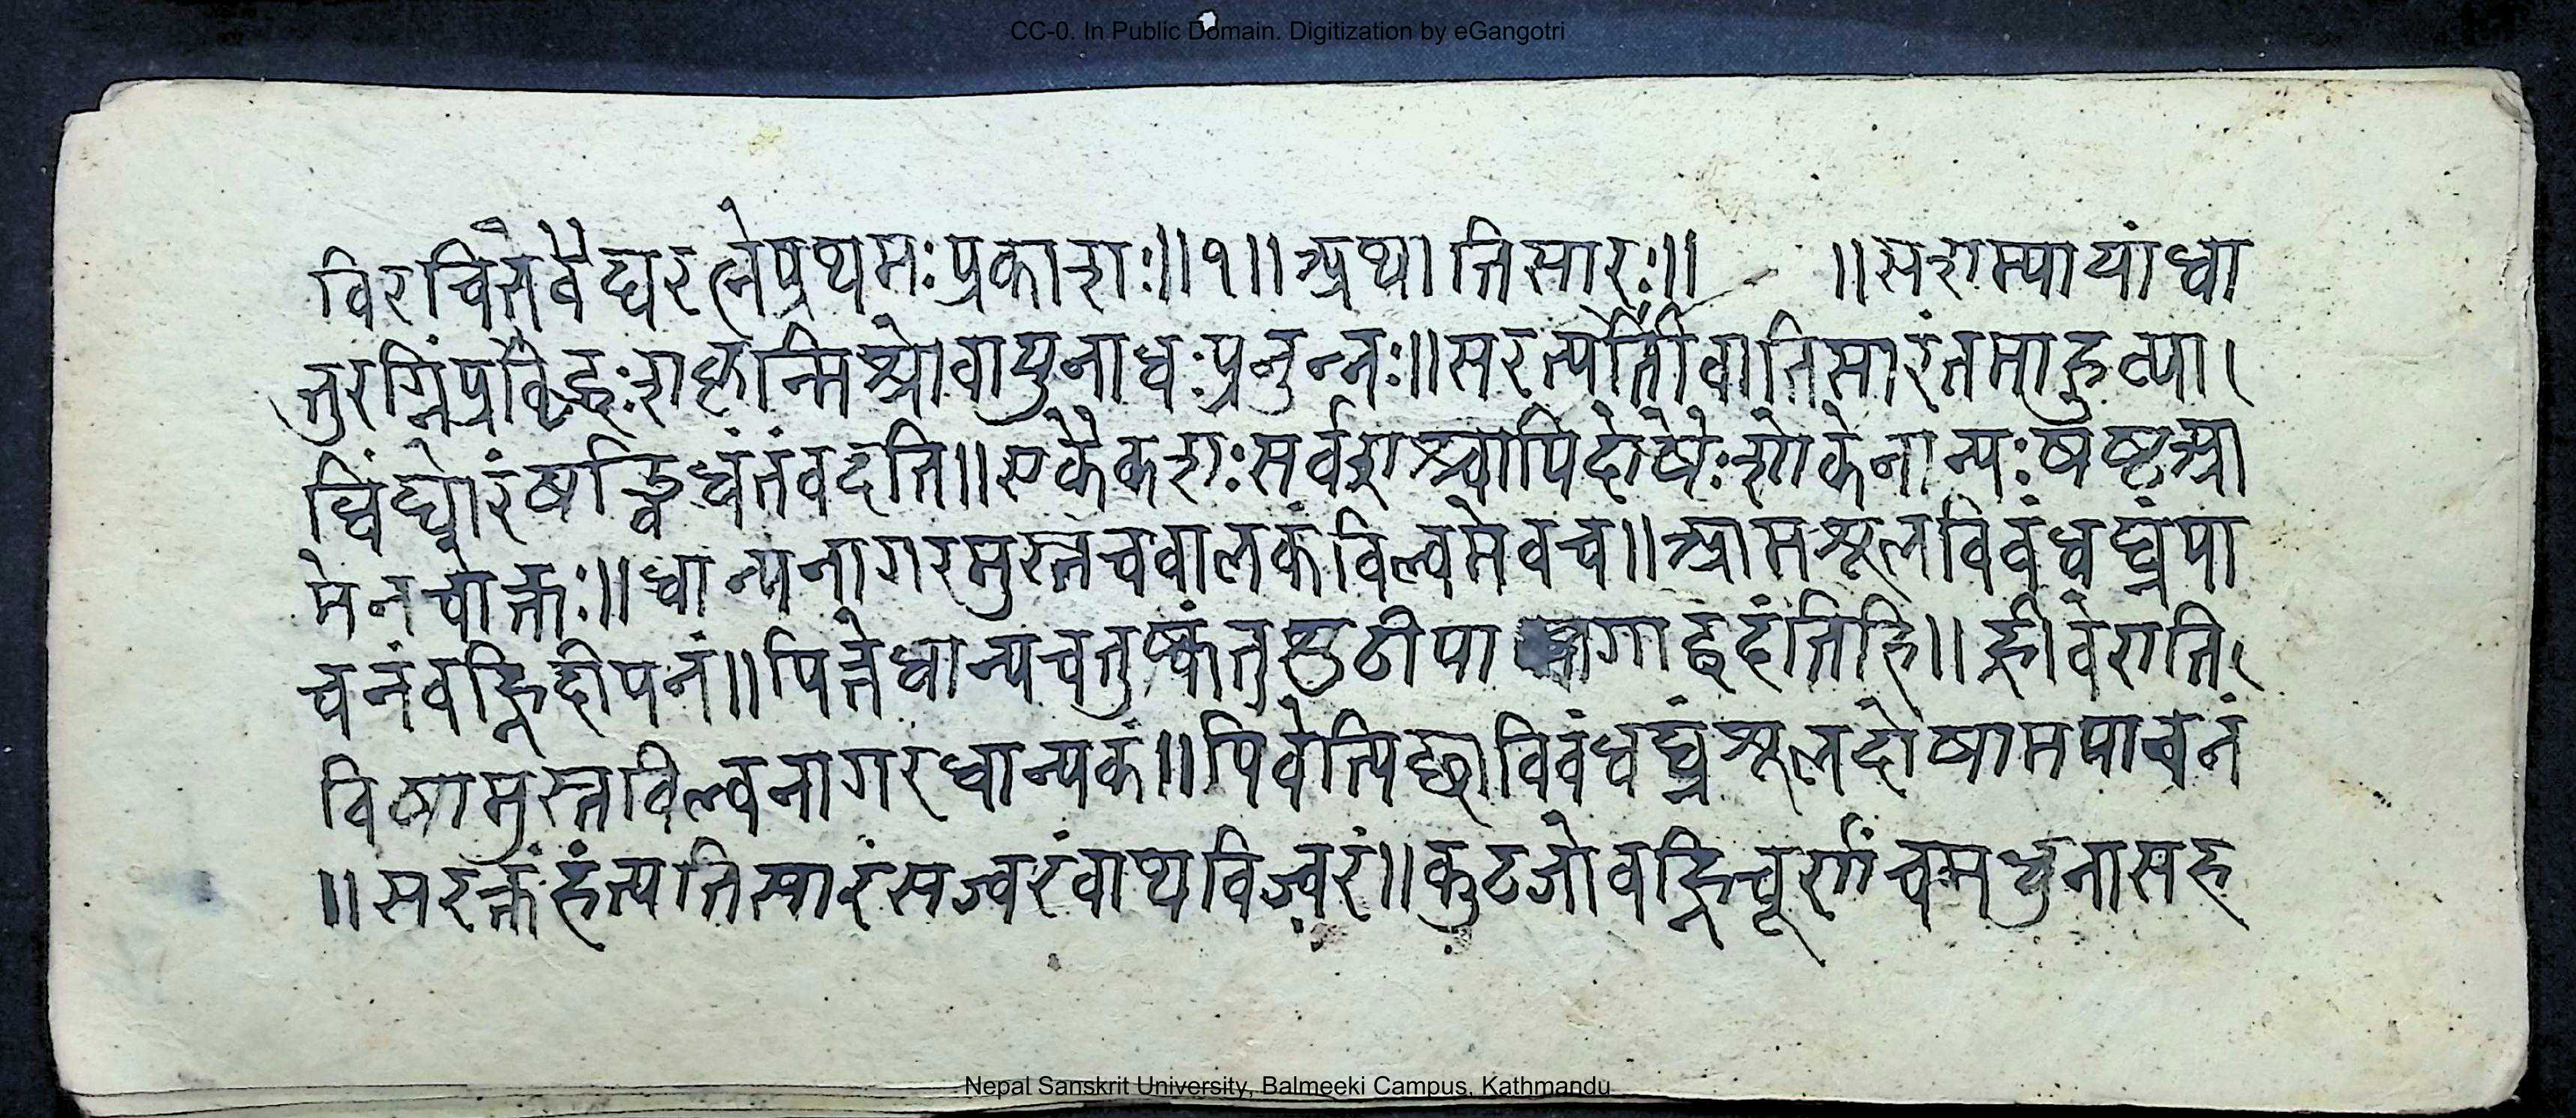 CC-0. In Public Domain. Digitization by eGangotri
विरचिते वैद्यरत्ने प्रथमः प्रकाशः ॥ १ ॥ अथातिसारः ॥ ॥ संशम्यापां धा
तुरग्निं प्रवृद्धः शकृन्मिश्रो वायुनाधः प्रनुन्नः ॥ सरत्यतीवातिसारं तमाहुर्व्या
धिं घोरं षड्विधं तं वदति ॥ एकैकशः सर्वशश्चापि दोषैः शोकेनान्यः षष्ठ आ
मेन चोक्तः ॥ धान्यनागरमुस्तं च वालकं विल्वमेव च ॥ आमशूलविवंधघ्नं पा
चनं वह्निदीपनं ॥ पित्ते धान्यचतुष्कं तु शुठी वदंति हि ॥ ह्रीवेराति
विषामुस्तविल्वनागरधान्यकं ॥ पिवेत्पिछाविवंधघ्नं शूलदोषामपाचनं
॥ सरक्तं हंत्यतिसारं सज्वरं वाथ विज्वरं ॥ कुटजो वह्निचूर्णं च मधुना सह
Nepal Sanskrit University, Balmeeki Campus, Kathmandu